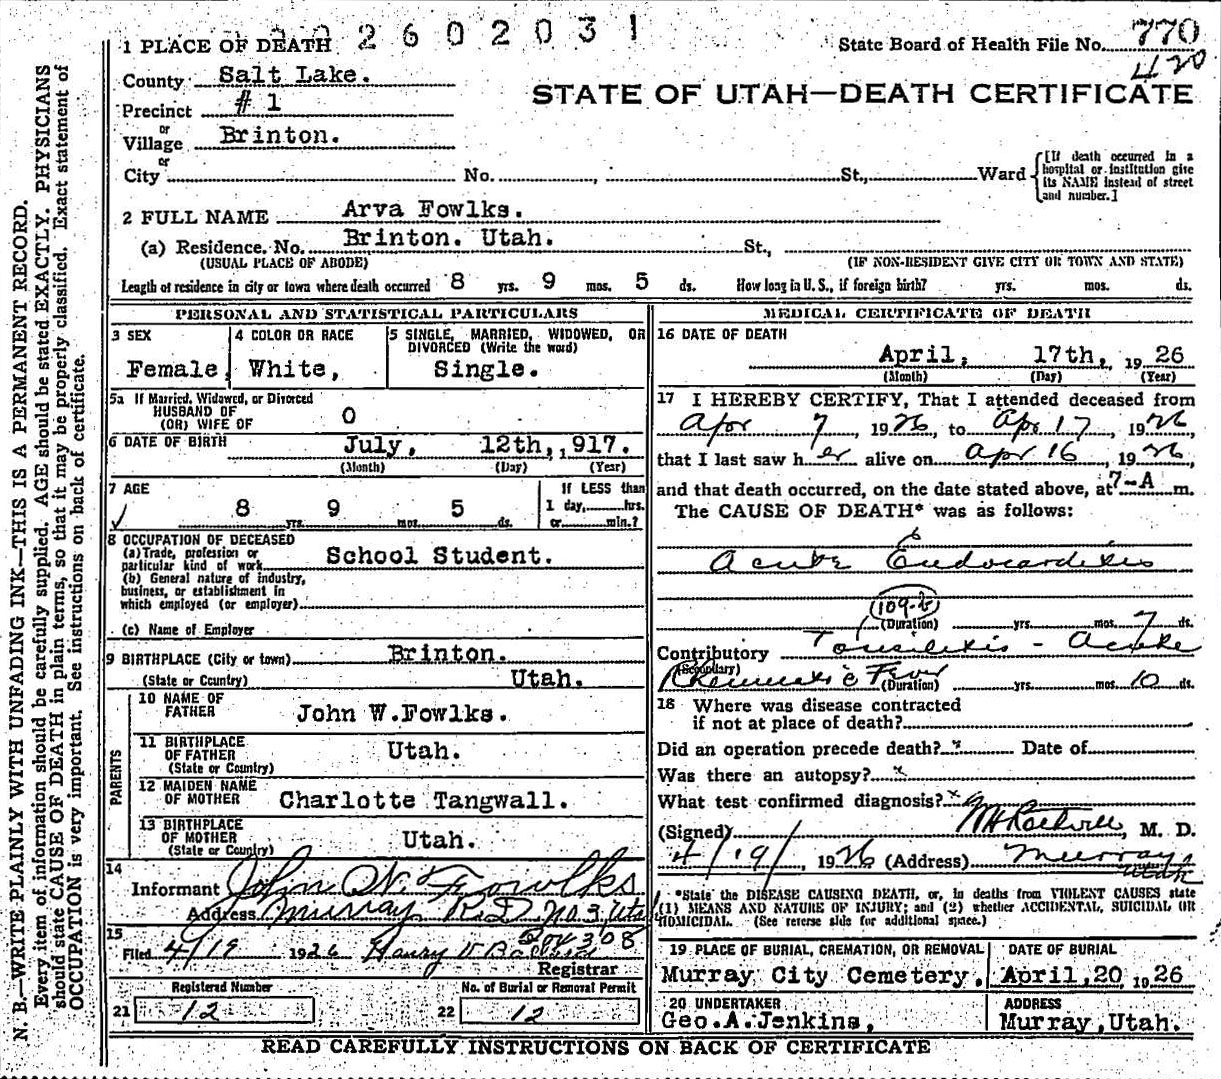 2602031
State Board of Health File No. 770
420
1 PLACE OF DEATH
County Salt Lake.
STATE OF UTAH—DEATH CERTIFICATE
Precinct # 1
or
Village Brinton.
or
City No. , St., Ward [If death occurred in a hospital or institution give its NAME instead of street and number.]
2 FULL NAME Arva Fowlks.
(a) Residence, No. Brinton. Utah. St.,
(USUAL PLACE OF ABODE) (IF NON-RESIDENT GIVE CITY OR TOWN AND STATE)
Length of residence in city or town where death occurred 8 yrs. 9 mos. 5 ds. How long in U. S., if foreign birth? yrs. mos. ds.
PERSONAL AND STATISTICAL PARTICULARS
3 SEX
Female,
4 COLOR OR RACE
White,
5 SINGLE, MARRIED, WIDOWED, OR
DIVORCED (Write the word)
Single.
5a If Married, Widowed, or Divorced
HUSBAND OF
(OR) WIFE OF O
6 DATE OF BIRTH July, 12th, 1917.
(Month) (Day) (Year)
7 AGE
8 yrs. 9 mos. 5 ds.
If LESS than
1 day, hrs.
or min.?
8 OCCUPATION OF DECEASED
(a) Trade, profession or
particular kind of work School Student.
(b) General nature of industry,
business, or establishment in
which employed (or employer)
(c) Name of Employer
9 BIRTHPLACE (City or town) Brinton.
(State or Country) Utah.
PARENTS
10 NAME OF
FATHER John W.Fowlks.
11 BIRTHPLACE
OF FATHER Utah.
(State or Country)
12 MAIDEN NAME
OF MOTHER Charlotte Tangwall.
13 BIRTHPLACE
OF MOTHER Utah.
(State or Country)
14
Informant John W. Fowlks
Address Murray R.D. No. 3, Uta
Box 308
15
Filed 4/19 1926 Henry V
Registrar
Registered Number
21 12
No. of Burial or Removal Permit
22 12
MEDICAL CERTIFICATE OF DEATH
16 DATE OF DEATH
April, 17th, 1926
(Month) (Day) (Year)
17 I HEREBY CERTIFY, That I attended deceased from
Apr 7, 1926, to Apr 17, 1926,
that I last saw her alive on Apr 16, 1926,
and that death occurred, on the date stated above, at 7-A m.
The CAUSE OF DEATH* was as follows:
Acute Endocarditis
109-b
(Duration) yrs. mos. 7 ds.
Contributory Tonsilitis - Acute
(Secondary)
Rheumatic Fever
(Duration) yrs. mos. 10 ds.
18 Where was disease contracted
if not at place of death?
Did an operation precede death? x Date of
Was there an autopsy? x
What test confirmed diagnosis? x
(Signed) , M. D.
4/19/, 1926 (Address) Murray
Utah
*State the DISEASE CAUSING DEATH, or, in deaths from VIOLENT CAUSES state
(1) MEANS AND NATURE OF INJURY; and (2) whether ACCIDENTAL, SUICIDAL OR
HOMICIDAL. (See reverse side for additional space.)
19 PLACE OF BURIAL, CREMATION, OR REMOVAL
Murray City Cemetery,
DATE OF BURIAL
April, 20, 1926
20 UNDERTAKER
Geo.A.Jenkins,
ADDRESS
Murray, Utah.
READ CAREFULLY INSTRUCTIONS ON BACK OF CERTIFICATE
N. B.—WRITE PLAINLY WITH UNFADING INK—THIS IS A PERMANENT RECORD.
Every item of information should be carefully supplied. AGE should be stated EXACTLY. PHYSICIANS
should state CAUSE OF DEATH in plain terms, so that it may be properly classified. Exact statement of
OCCUPATION is very important. See instructions on back of certificate.